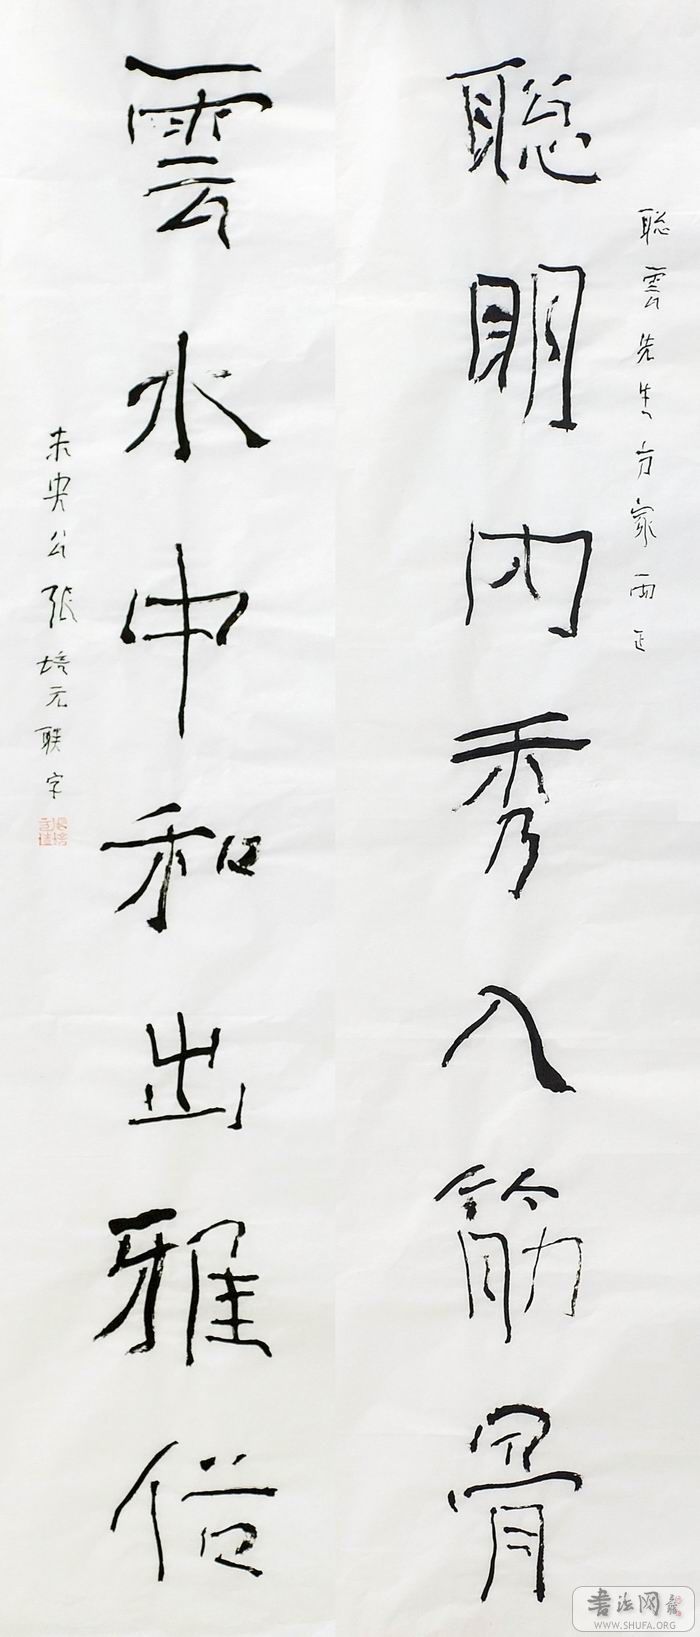 聰雲先生方家雨正
聰明内秀入筋骨
雲水中和出雅俗
未央公張培元联字
書法网
WWW.SHUFA.ORG